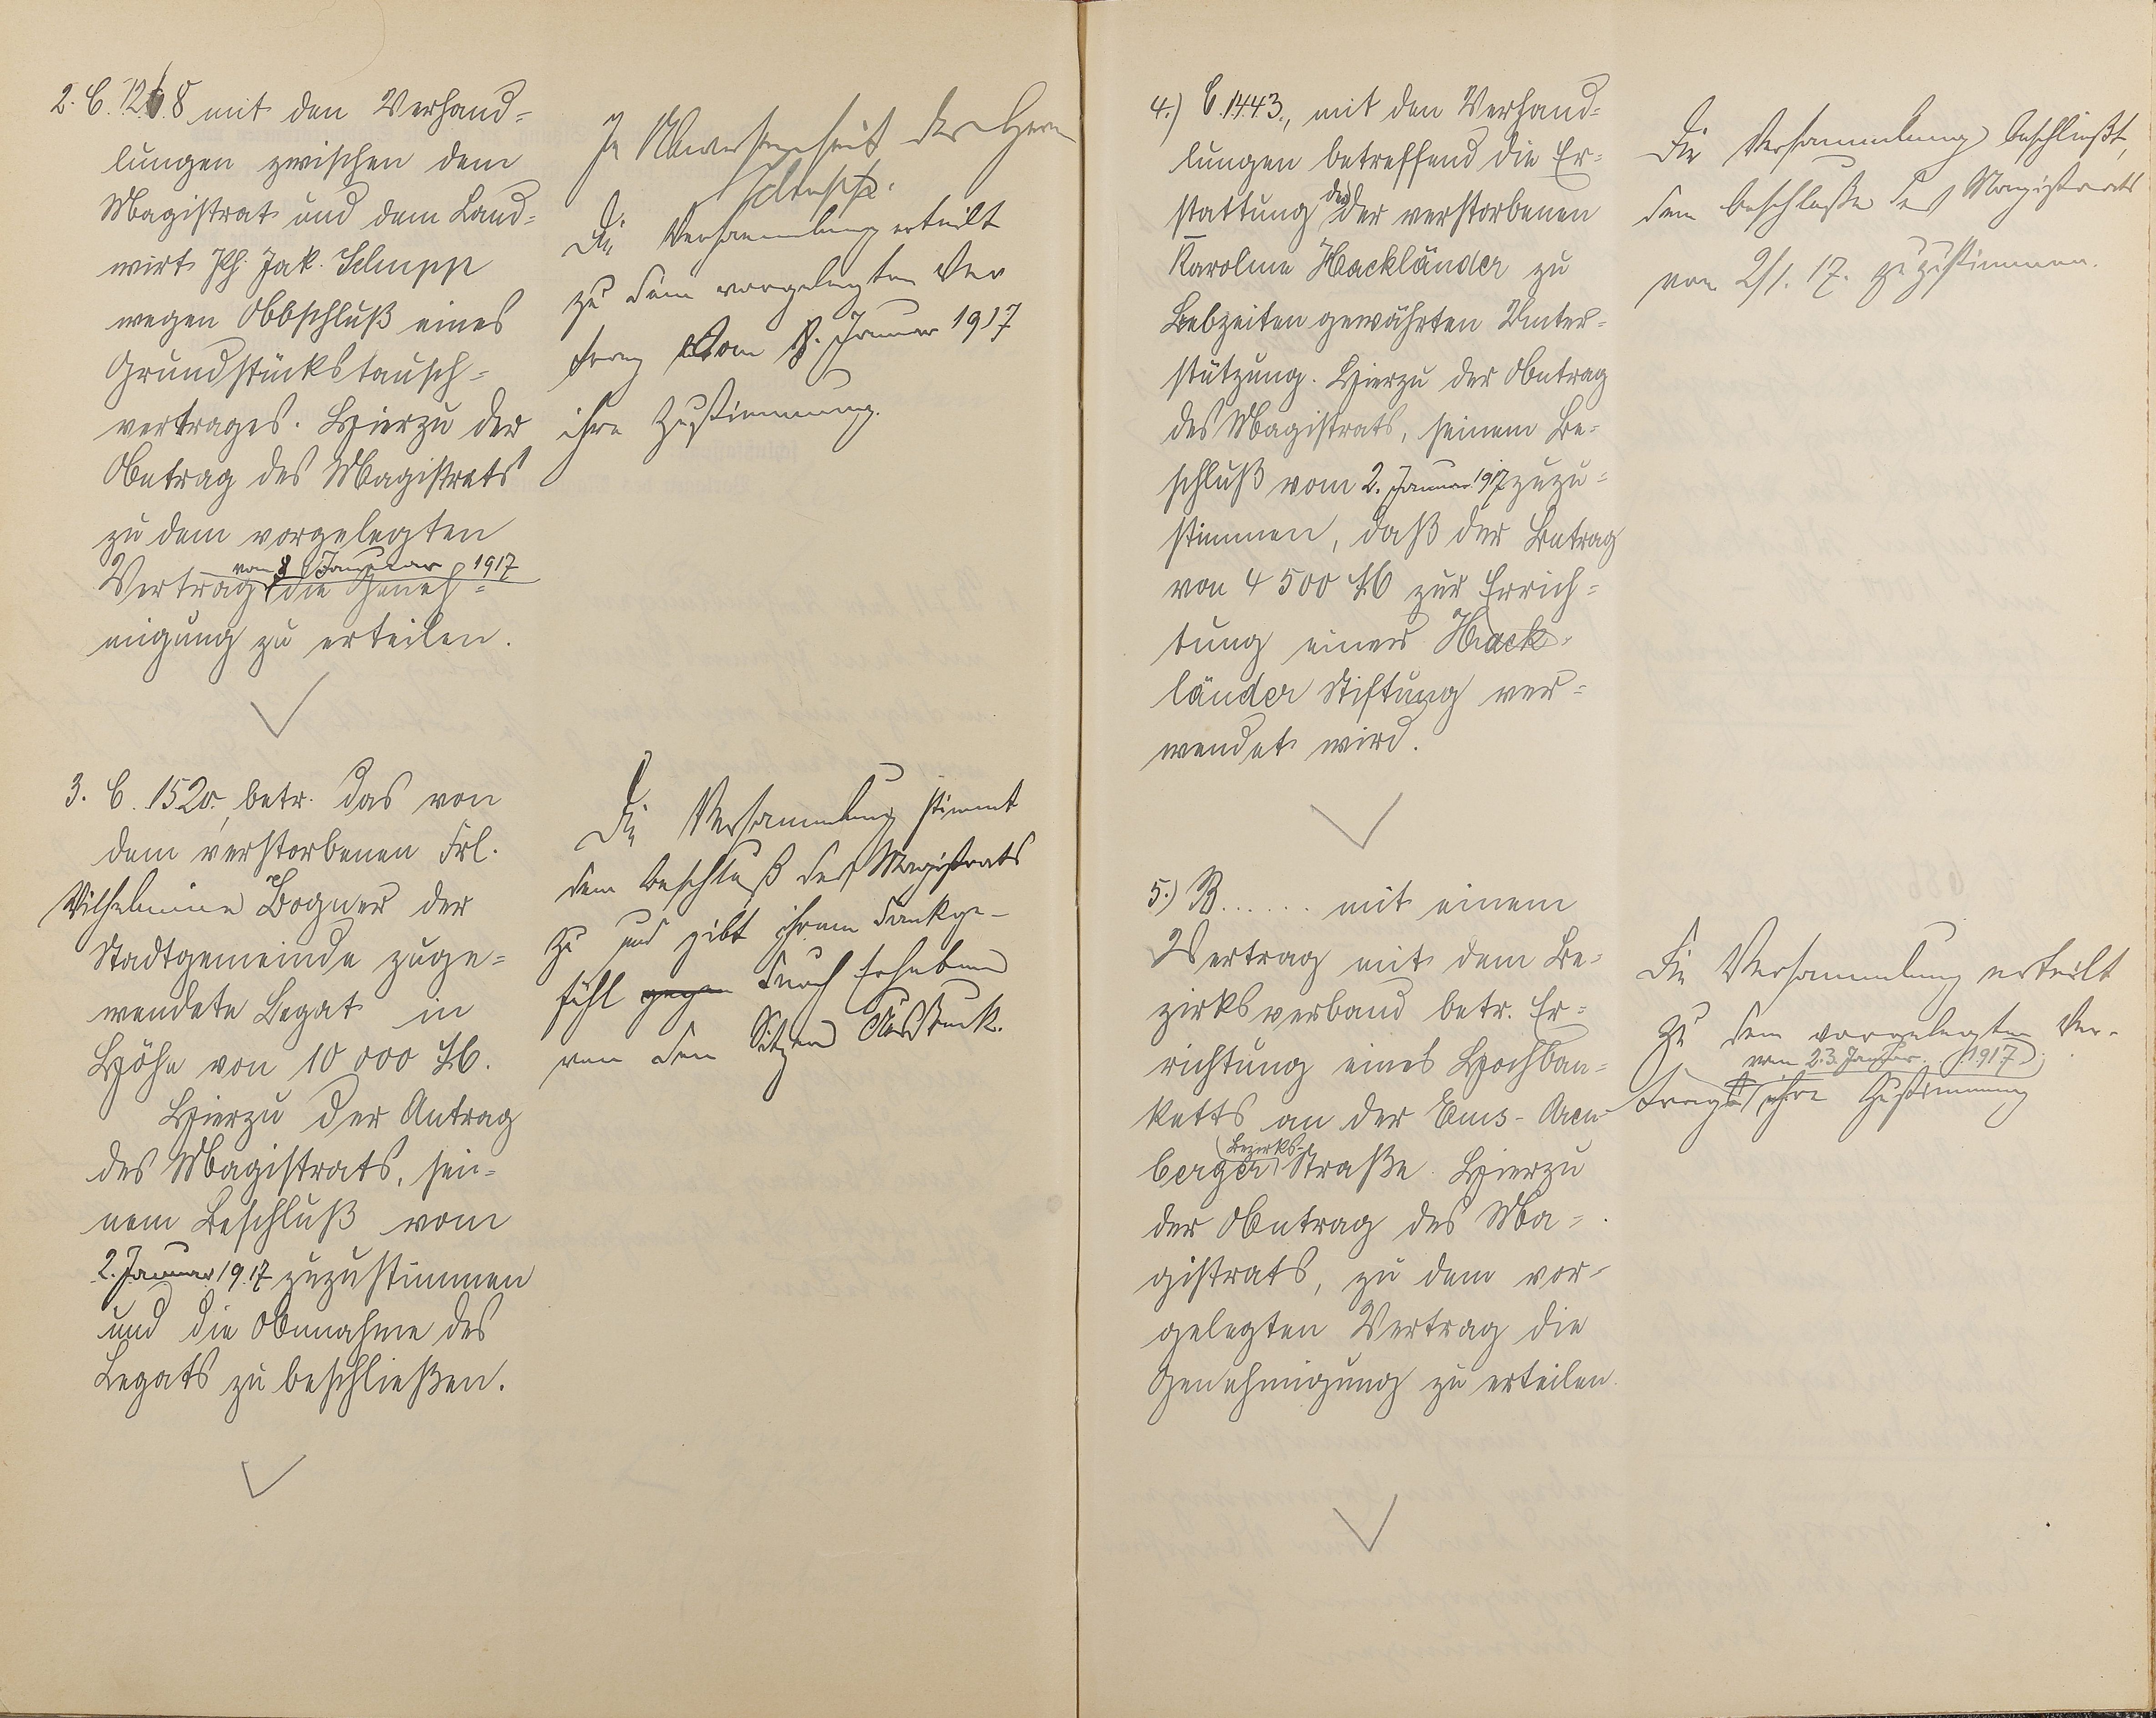 2. C. 1268 mit den Verhand-
lungen zwischen dem
Magistrat und dem Land-
wirt Ph. Jak. Schupp
wegen Abschluß eines
Grundstückstausch-
vertrages. Hierzu der
Antrag des Magistrats
zu dem vorgelegten
vom 8 Januar 1917
Vertrag die Geneh-
migung zu erteilen.
In Abwesenheit des Herrn
Schupp.
Die Versammlung erteilt
zu dem vorgelegten Ver
trag vom 8. Januar 1917
ihre Zustimmung.
3. C. 1520, betr. das von
dem verstorbenen Frl.
Wilhelmine Bogner der
Stadtgemeinde zuge-
wendete Legat in
Höhe von 10 000 M.
Hierzu der Antrag
des Magistrats, sei-
nem Beschluß vom
2. Januar 1917 zuzustimmen
und die Annahme des
Legats zu beschließen.
Die Versammlung stimmt
dem Beschluß des Magistrats
zu und gibt ihrem Dankge-
fühl gegen durch Erheben
von den Sitzen Ausdruck.
4.) C. 1443., mit den Verhand-
lungen betreffend die Er-
stattung der der verstorbenen
Karoline Hackländer zu
Lebzeiten gewährten Unter-
stützung. Hierzu der Antrag
des Magistrats, seinem Be-
schluß vom 2. Januar 1917 zuzu-
stimmen, daß der Betrag
von 4 500 M zur Errich-
tung einer Hack-
länder Stiftung ver-
wendet wird.
Die Versammlung beschließt,
dem Beschlusse des Magistrats
von 2/1. 17. zuzustimmen.
5.) B...... mit einem
Vertrag mit dem Be-
zirksverband betr. Er-
richtung eines Hochban-
ketts an der Ems-Aren-
Bezirks-
berger Straße. Hierzu
der Antrag des Ma-
gistrats, zu dem vor-
gelegten Vertrag die
Genehmigung zu erteilen.
Die Versammlung erteilt
zu dem vorgelegten Ver-
vom 23. Januar 1917
trag ihre Zustimmung